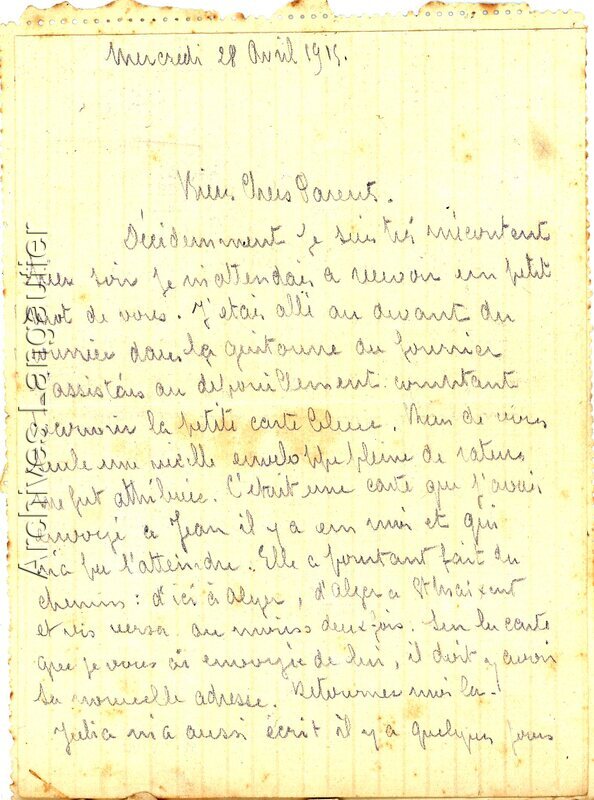 Mercredi 28 Avril 1915.
Bien Chers Parents.
Décidemment Je suis très mécontent
hier soir Je m'attendais a recevoir un petit
mot de vous. J'étais allé au devant du
courrier dans la guitoune du fourrier
assistais au dépouillement comptant
la petite carte bleue. Rien de vous
seule une vieille enveloppe pleine de ratures
me fut attribuée. C'était une carte que j'avais
envoyé a Jean il y a un moi et qui
n'a pu l'atteindre. Elle a pourtant fait du
chemin : d'ici à Alger, d'Alger a St Maixent
et vis versa au moins deux fois. Sur la carte
que je vous ai envoyée de lui, il doit y avoir
sa nouvelle adresse. Retournez moi la.
Julia m'a aussi écrit il y a quelques jours
Archives Lagoutier